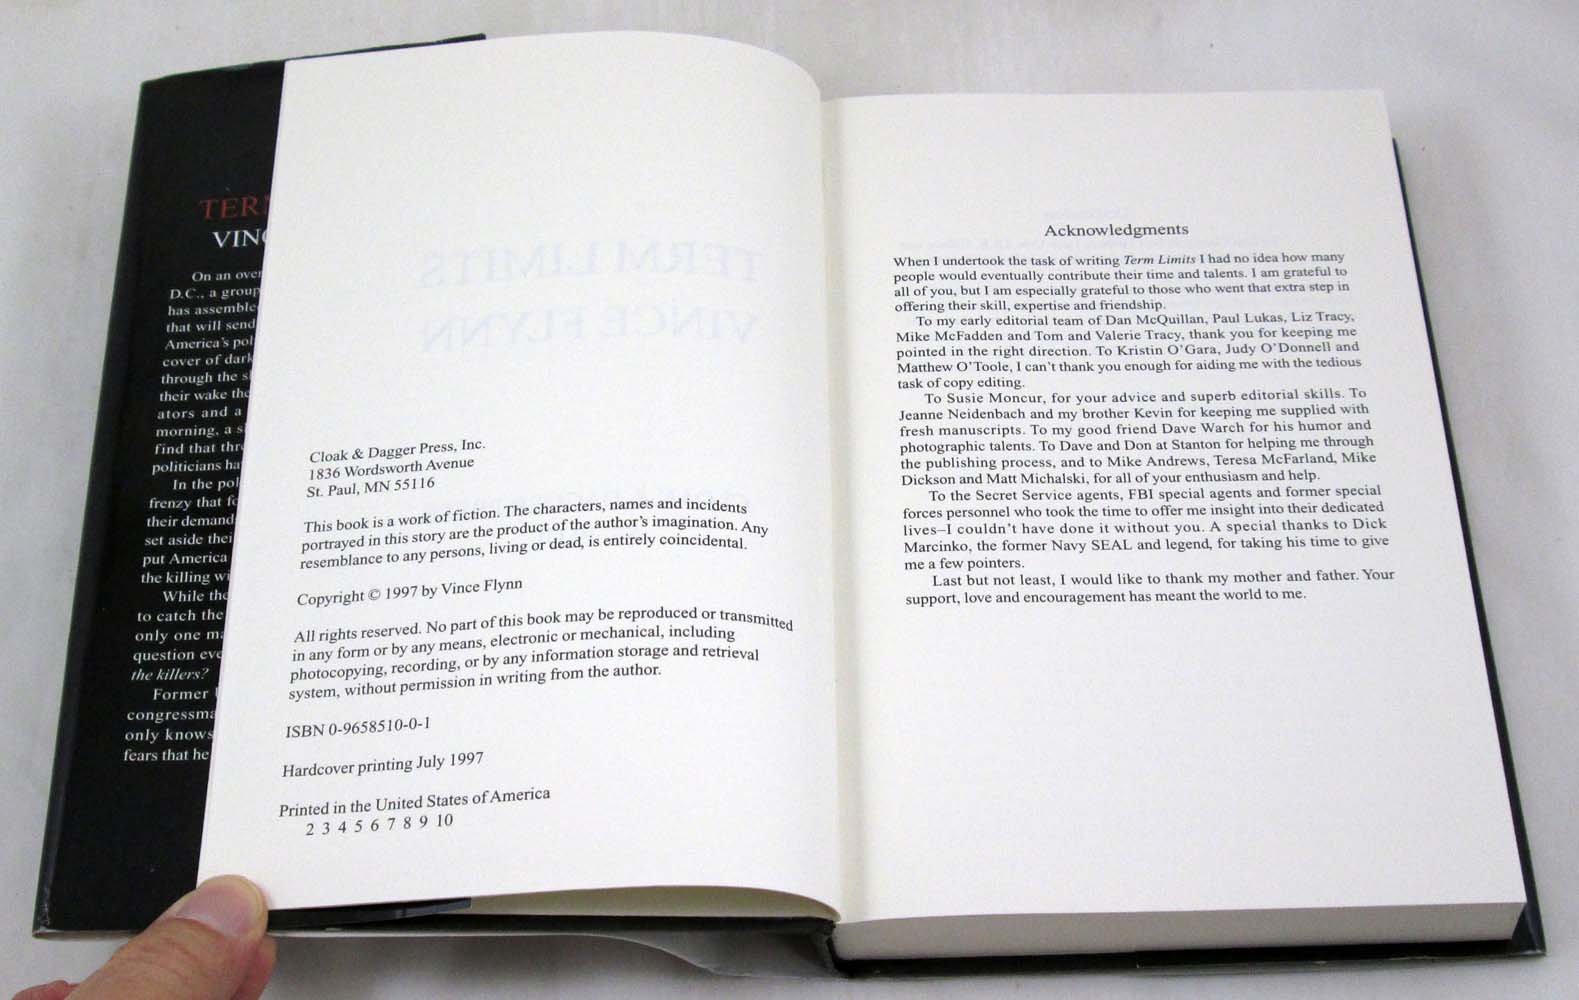 TER
VINC
On an over
D.C., a group
has assemble
that will send
America's pol
cover of dark
through the s
their wake the
ators and a
morning, a s
find that thr
politicians ha
In the pol
frenzy that fo
their demand
set aside thei
put America
the killing wi
While the
to catch the
only one ma
question eve
the killers?
Former
congressma
only knows
fears that he
TERM LIMITS
VINCE FLYNN
Cloak & Dagger Press, Inc.
1836 Wordsworth Avenue
St. Paul, MN 55116
This book is a work of fiction. The characters, names and incidents
portrayed in this story are the product of the author's imagination. Any
resemblance to any persons, living or dead, is entirely coincidental.
Copyright © 1997 by Vince Flynn
All rights reserved. No part of this book may be reproduced or transmitted
in any form or by any means, electronic or mechanical, including
photocopying, recording, or by any information storage and retrieval
system, without permission in writing from the author.
ISBN 0-9658510-0-1
Hardcover printing July 1997
Printed in the United States of America
2 3 4 5 6 7 8 9 10
Acknowledgments
When I undertook the task of writing Term Limits I had no idea how many
people would eventually contribute their time and talents. I am grateful to
all of you, but I am especially grateful to those who went that extra step in
offering their skill, expertise and friendship.
To my early editorial team of Dan McQuillan, Paul Lukas, Liz Tracy,
Mike McFadden and Tom and Valerie Tracy, thank you for keeping me
pointed in the right direction. To Kristin O'Gara, Judy O'Donnell and
Matthew O'Toole, I can't thank you enough for aiding me with the tedious
task of copy editing.
To Susie Moncur, for your advice and superb editorial skills. To
Jeanne Neidenbach and my brother Kevin for keeping me supplied with
fresh manuscripts. To my good friend Dave Warch for his humor and
photographic talents. To Dave and Don at Stanton for helping me through
the publishing process, and to Mike Andrews, Teresa McFarland, Mike
Dickson and Matt Michalski, for all of your enthusiasm and help.
To the Secret Service agents, FBI special agents and former special
forces personnel who took the time to offer me insight into their dedicated
lives–I couldn't have done it without you. A special thanks to Dick
Marcinko, the former Navy SEAL and legend, for taking his time to give
me a few pointers.
Last but not least, I would like to thank my mother and father. Your
support, love and encouragement has meant the world to me.